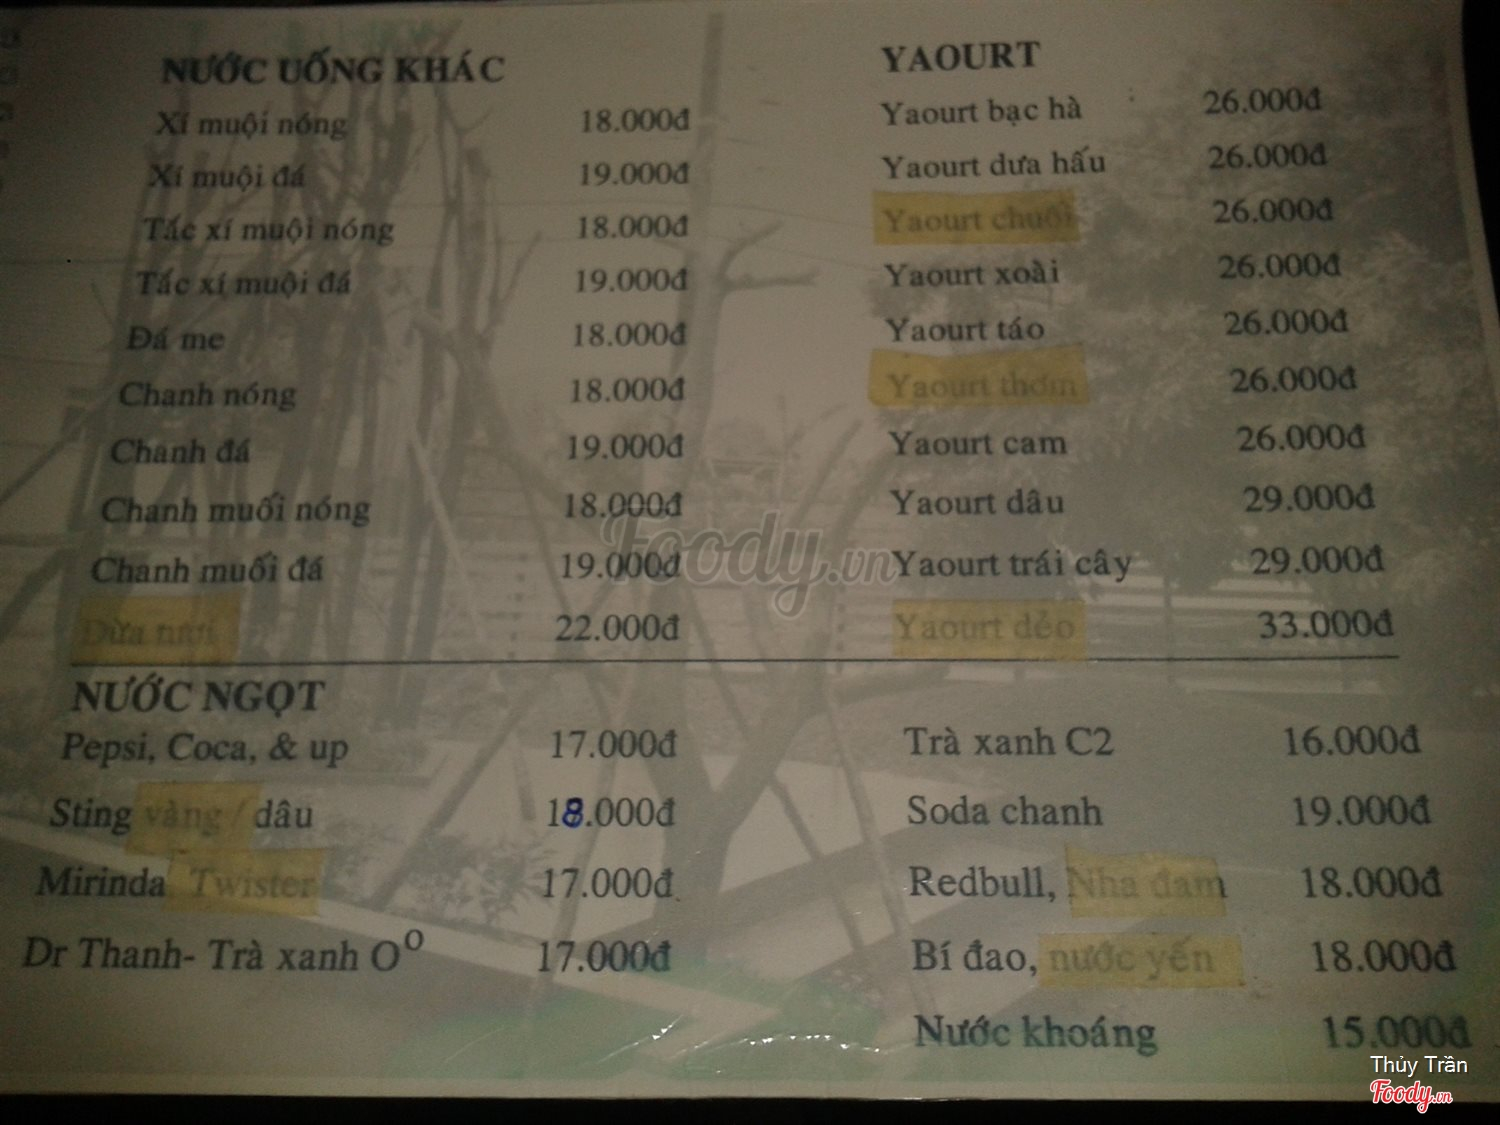 NƯỚC UỐNG KHÁC
Xí muội nóng 18.000đ
Xí muội đá 19.000đ
Tắc xí muội nóng 18.000đ
Tắc xí muội đá 19.000đ
Đá me 18.000đ
Chanh nóng 18.000đ
Chanh đá 19.000đ
Chanh muối nóng 18.000đ
Chanh muối đá 19.000đ
Dừa tươi 22.000đ
YAOURT
Yaourt bạc hà 26.000đ
Yaourt dưa hấu 26.000đ
Yaourt chuối 26.000đ
Yaourt xoài 26.000đ
Yaourt táo 26.000đ
Yaourt thơm 26.000đ
Yaourt cam 26.000đ
Yaourt dâu 29.000đ
Yaourt trái cây 29.000đ
Yaourt dẻo 33.000đ
NƯỚC NGỌT
Pepsi, Coca, & up 17.000đ
Sting vàng / dâu 18.000đ
Mirinda Twister 17.000đ
Dr Thanh- Trà xanh O° 17.000đ
Trà xanh C2 16.000đ
Soda chanh 19.000đ
Redbull, Nha đam 18.000đ
Bí đao, nước yến 18.000đ
Nước khoáng 15.000đ
Foody.vn
Thủy Trần
Foody.vn